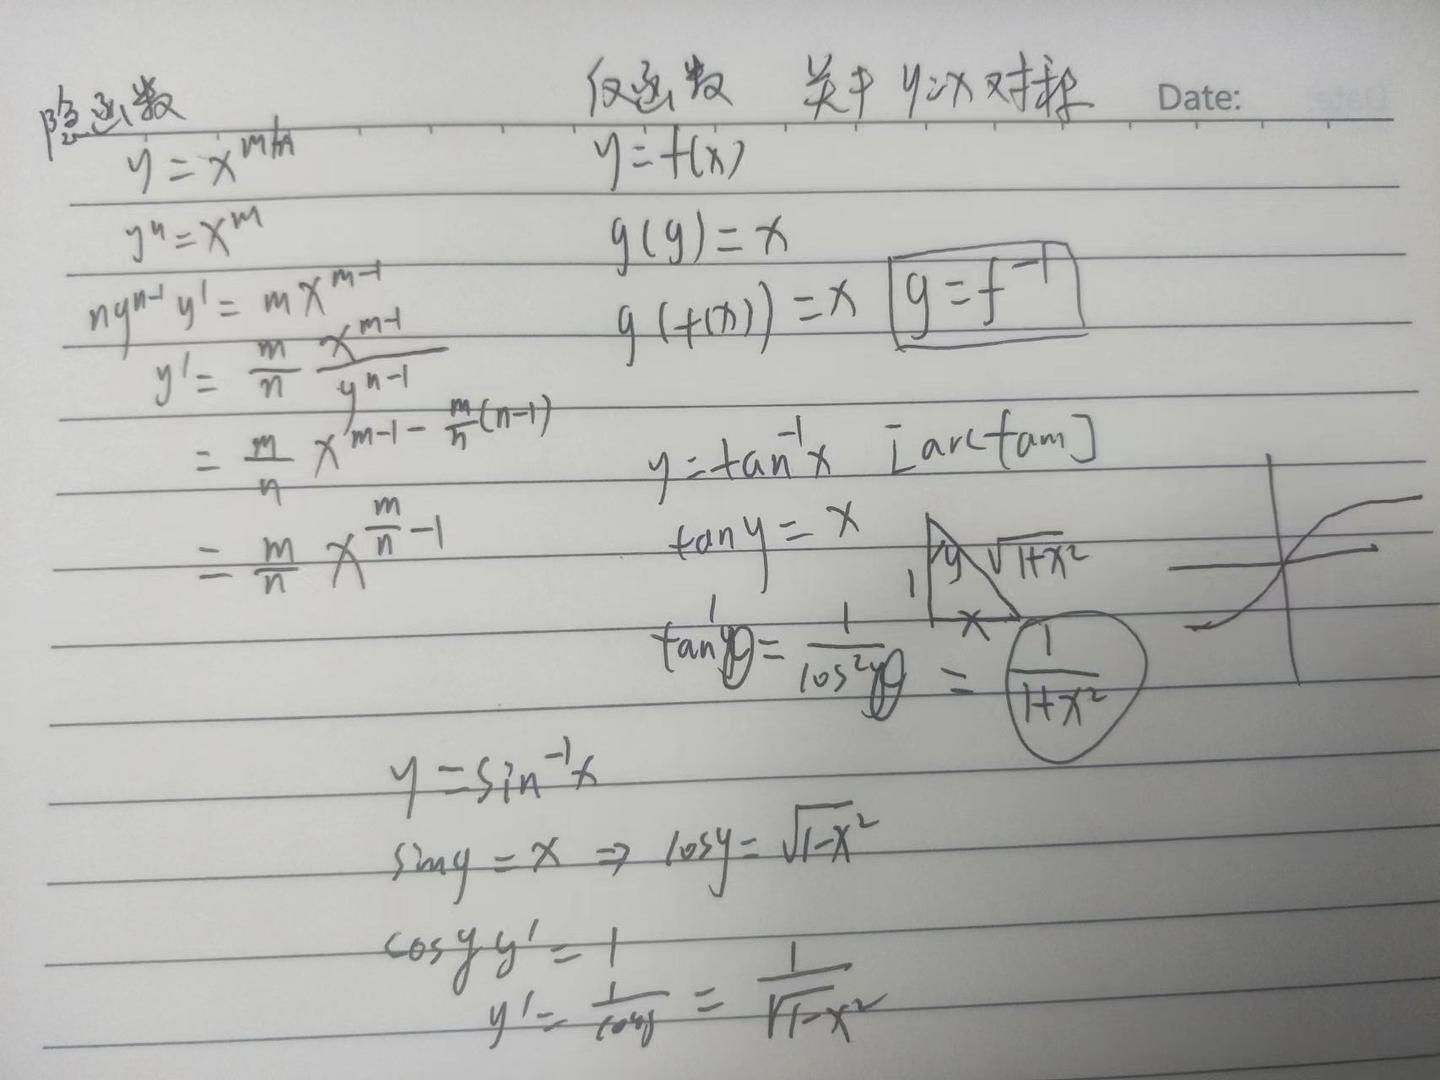 隐函数
y = x^{m/n}
y^n = x^m
ny^{n-1} y' = m x^{m-1}
y' = \frac{m}{n} \frac{x^{m-1}}{y^{n-1}}
= \frac{m}{n} x^{m-1-\frac{m}{n}(n-1)}
= \frac{m}{n} x^{\frac{m}{n}-1}
反函数 关于 y=x 对称
Date:
y = f(x)
g(y) = x
g(f(x)) = x g = f^{-1}
y = tan^{-1} x [arctan]
tan y = x
1 y \sqrt{1+x^2}
x
= \frac{1}{1+x^2}
y = sin^{-1} x
sin y = x ⇒ cos y = \sqrt{1-x^2}
cos y y' = 1
y' = \frac{1}{cos y} = \frac{1}{\sqrt{1-x^2}}